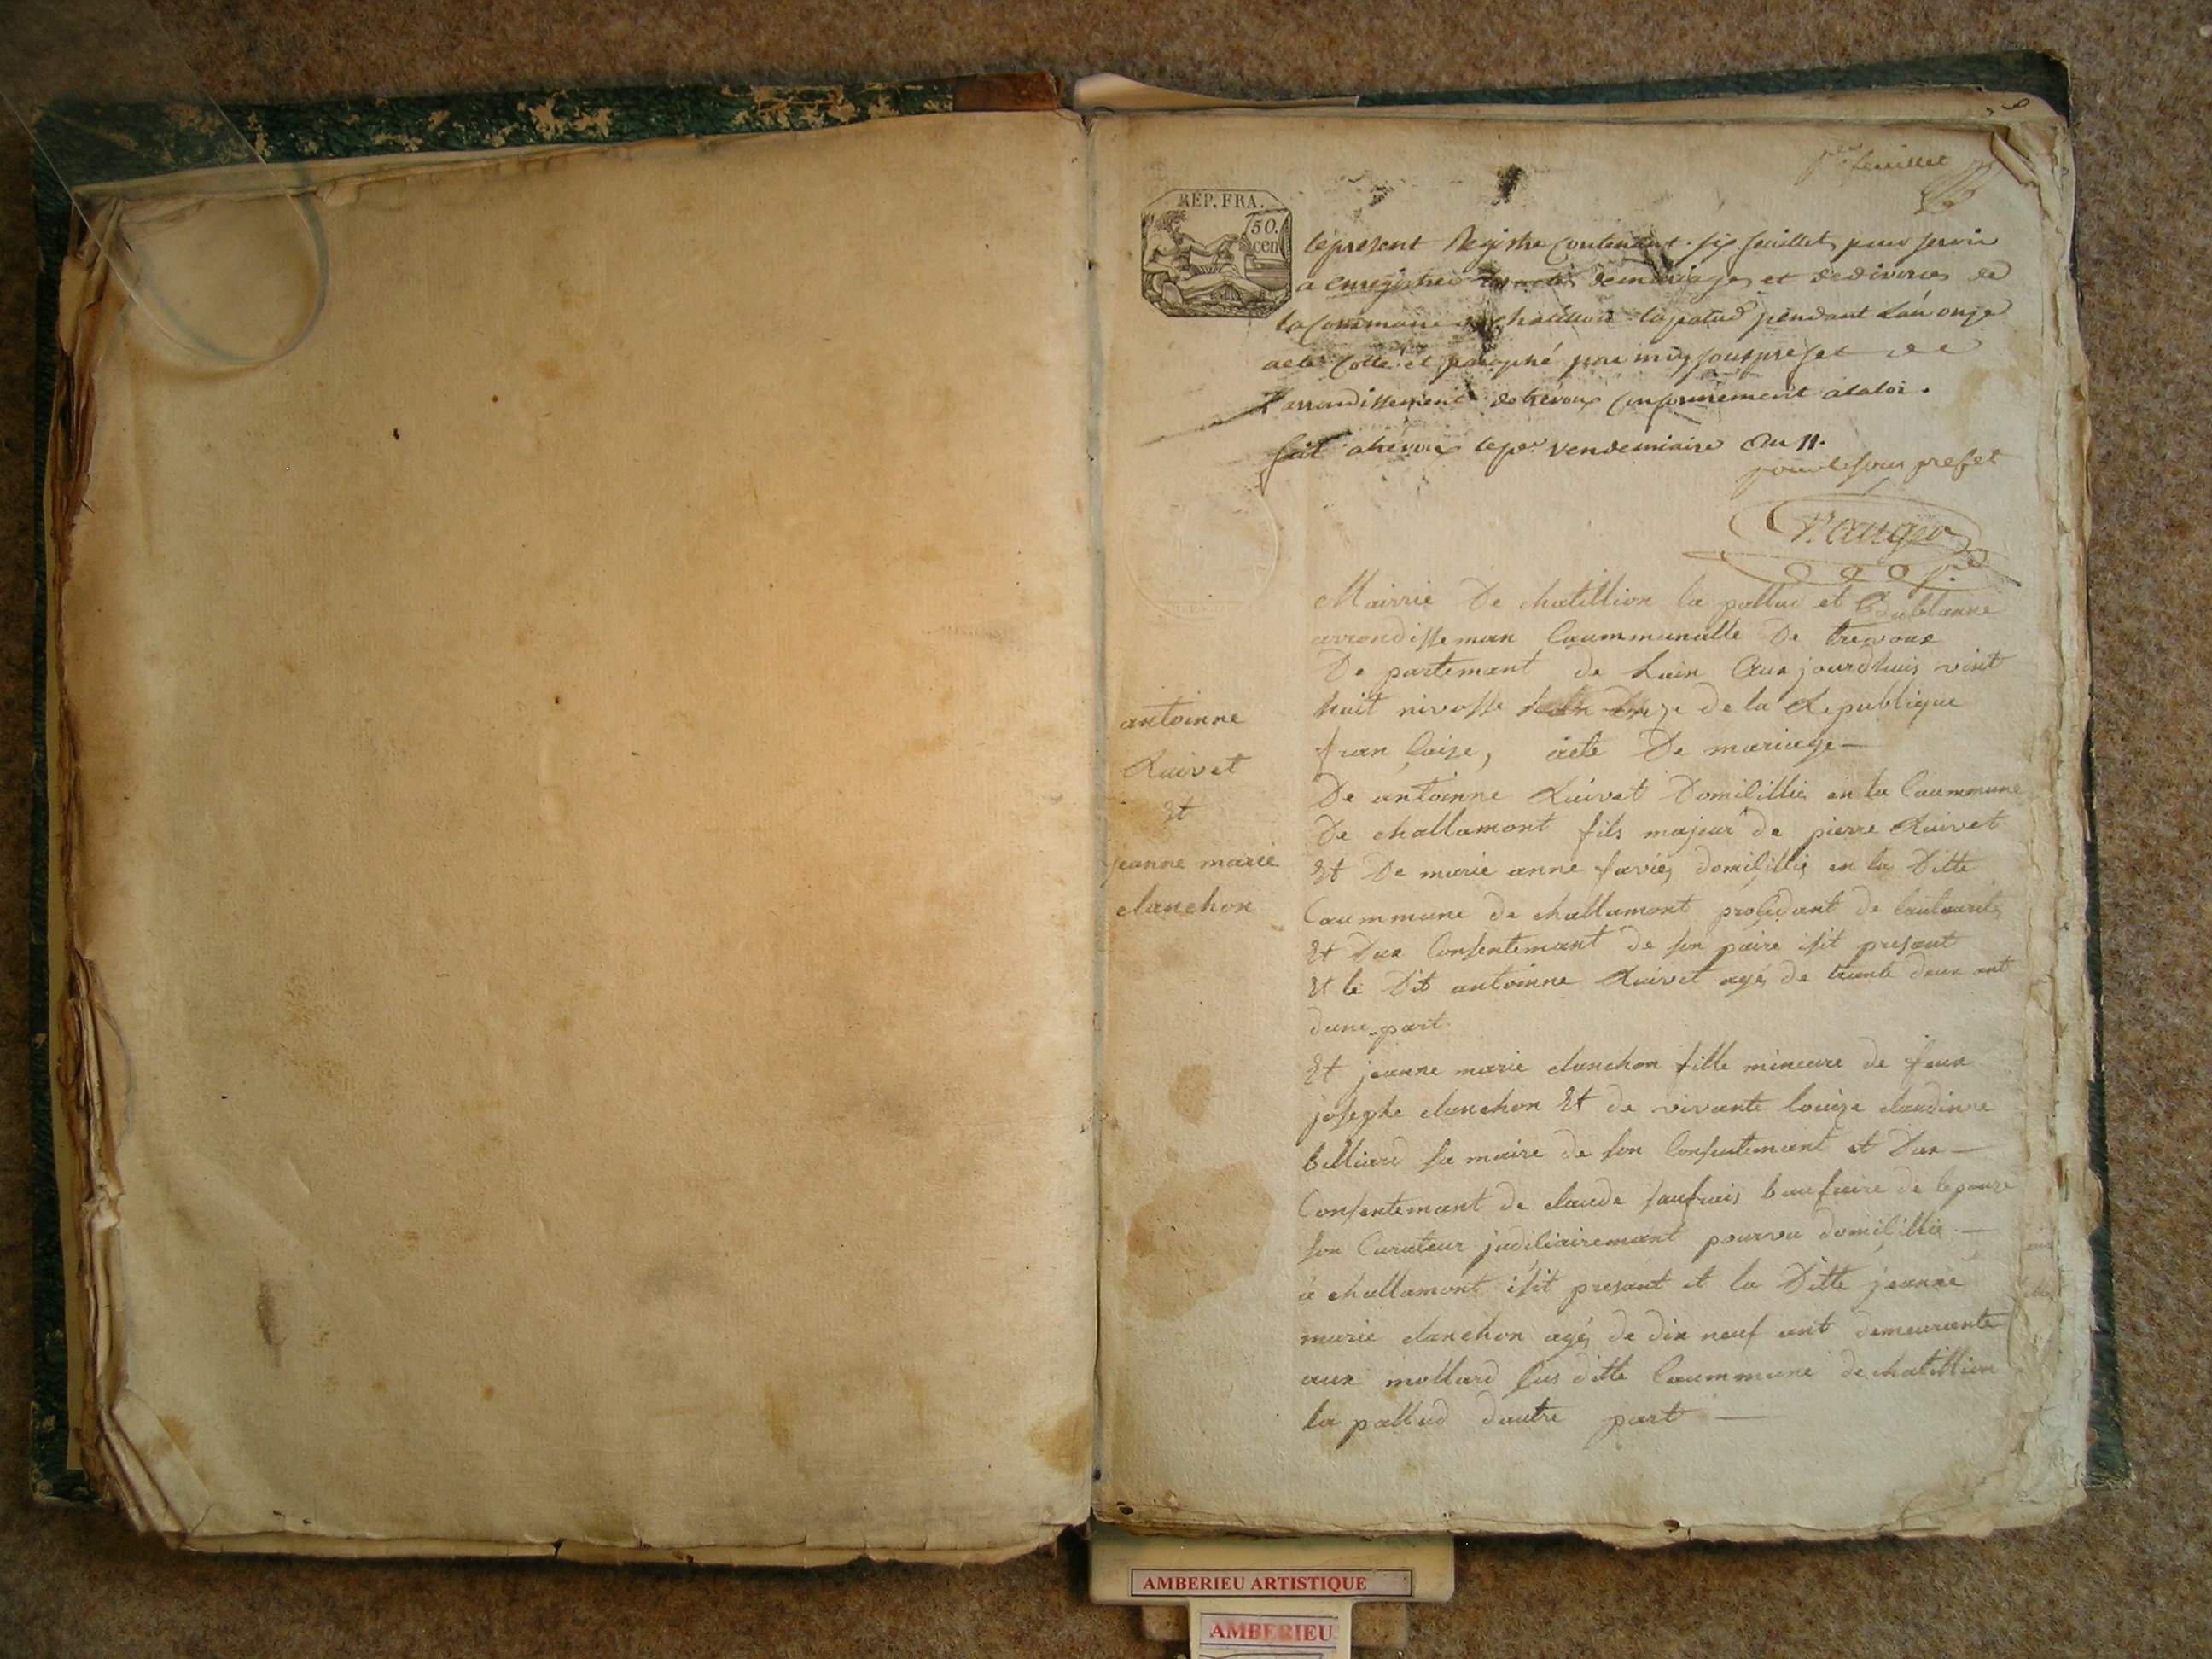 per feuillet
REP. FRA.
50.
cen
le present Registre Contenant six feuillets pour servir
a enregistrer les actes de mariages et de divorces de
la Commune de chatillon lapalud pendant l'an onze
a ete Cotté et paraphé par moy sous prefet de
L'arrondissement de trevoux Conformement a la loi.
fait a trevoux le per vendemiaire an 11.
pour le sous prefet
Mairrie De chatillion la pallud et
arrondisseman Caummunalle De trevoux
De partemant de Lain Aux jourdhuis vint
huit nivosse de la Republique
fran Caize, acte De mariage
antoinne
Ruivet
Et
jeanne marie
clanchon
De antoinne Ruivet Domicillié en la Caummune
De challamont fils majeur de pierre Ruivet
Et De marie anne favier domicillié en la Ditte
Caummune de challamont procedant de
Et Dux Consentemant de son paire isit presant
Et le Dit antoinne Ruivet agé de trante deux ant
dune part
Et jeanne marie clanchon fille mineure de feux
josephe clanchon Et de vivante louize claudinne
billiard sa maire de son Consentemant et Dux
Consentemant de claude baufraire de lepouze
son Curateur judiciairemant pourvu domicillié
à challamont isit presant et la Ditte jeanne
marie clanchon agé de dix neuf ant demeurante
aux mollard sus ditte Caummune de chatillion
la pallud dautre part
AMBERIEU ARTISTIQUE
AMBERIEU